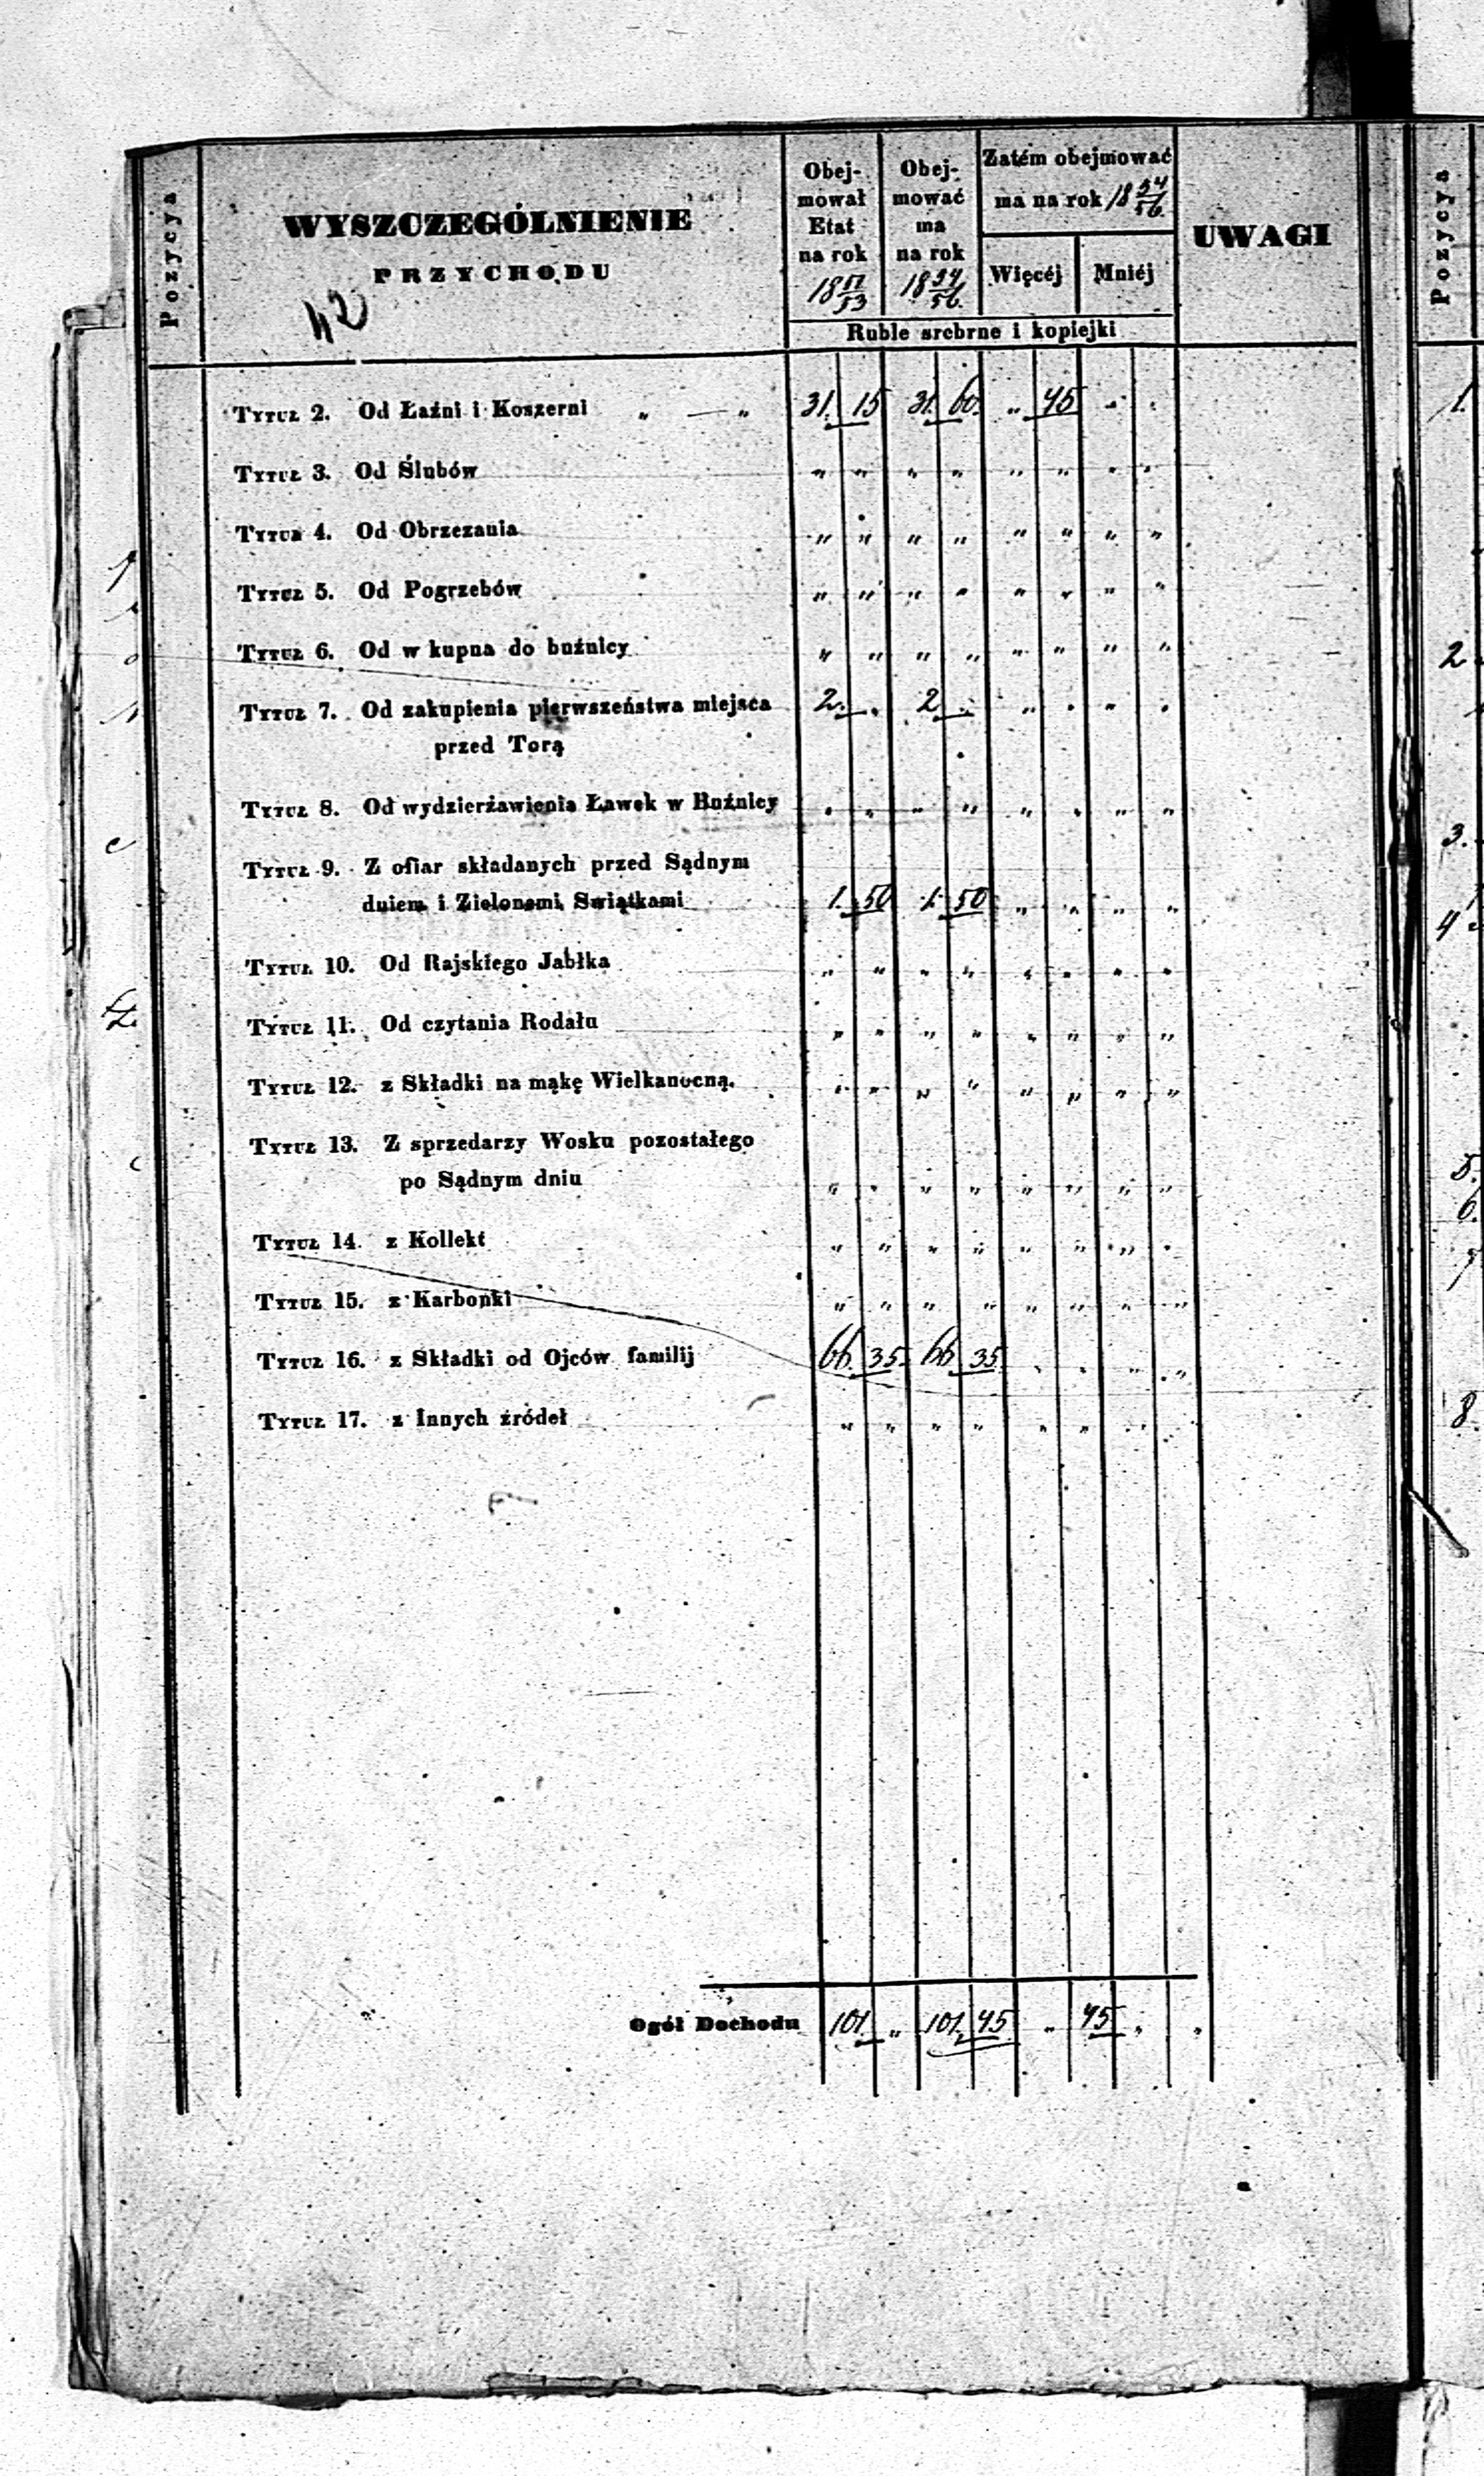 Pozycya
WYSZCZEGÓLNIENIE
PRZYCHODU
42
Obej-
mował
Etat
na rok
18 51/53
Obej-
mować
ma
na rok
18 54/56.
Zatém obejmować
ma na rok 18 54/56.
Więcéj Mniéj
Ruble srebrne i kopiejki
UWAGI
Pozycya
Tytuł 2. Od Łaźni i Koszerni „ — „ 31. 15 31. 60. „ 45 „ „
Tytuł 3. Od Ślubów „ „ „ „ „ „ „ „
Tytuł 4. Od Obrzezania „ „ „ „ „ „ „ „
Tytuł 5. Od Pogrzebów „ „ „ „ „ „ „ „
Tytuł 6. Od w kupna do buźnicy „ „ „ „ „ „ „ „
Tytuł 7. Od zakupienia pierwszeństwa miejsca 2. „ 2 „ „ „ „ „
przed Torą
Tytuł 8. Od wydzierżawienia Ławek w Buźnicy „ „ „ „ „ „ „ „
Tytuł 9. Z ofiar składanych przed Sądnym
dniem i Zielonemi Swiątkami 1. 50 1. 50 „ „ „ „
Tytuł 10. Od Rajskiego Jabłka „ „ „ „ „ „ „ „
Tytuł 11. Od czytania Rodału „ „ „ „ „ „ „ „
Tytuł 12. z Składki na mąkę Wielkanocną. „ „ „ „ „ „ „ „
Tytuł 13. Z sprzedarzy Wosku pozostałego
po Sądnym dniu „ „ „ „ „ „ „ „
Tytuł 14. z Kollekt „ „ „ „ „ „ „ „
Tytuł 15. z Karbonki „ „ „ „ „ „ „ „
Tytuł 16. z Składki od Ojców familij 66. 35. 66 35 „ „ „ „
Tytuł 17. z Innych źródeł „ „ „ „ „ „ „ „
Ogół Dochodu 101 „ 101. 45 „ 45 „ „
1.
2
3.
4
5.
6.
7
8